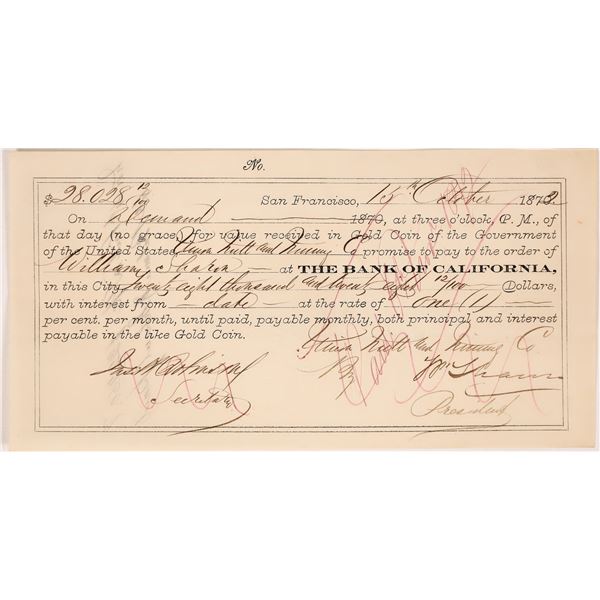 No.
$28.028 12/100 San Francisco, 15th October 1872
On Demand 1870, at three o'clock, P. M., of
that day (no grace,) for value received in Gold Coin of the Government
of the United States, Union Mill and Mining Co promise to pay to the order
of William Sharon at THE BANK OF CALIFORNIA,
in this City, twenty eight thousand and twenty eight 12/100 Dollars,
with interest from date at the rate of one (1)
per cent. per month, until paid, payable monthly, both principal and interest
payable in the like Gold Coin.
Union Mill and Mining Co
By Wm Sharon
Secretary
President